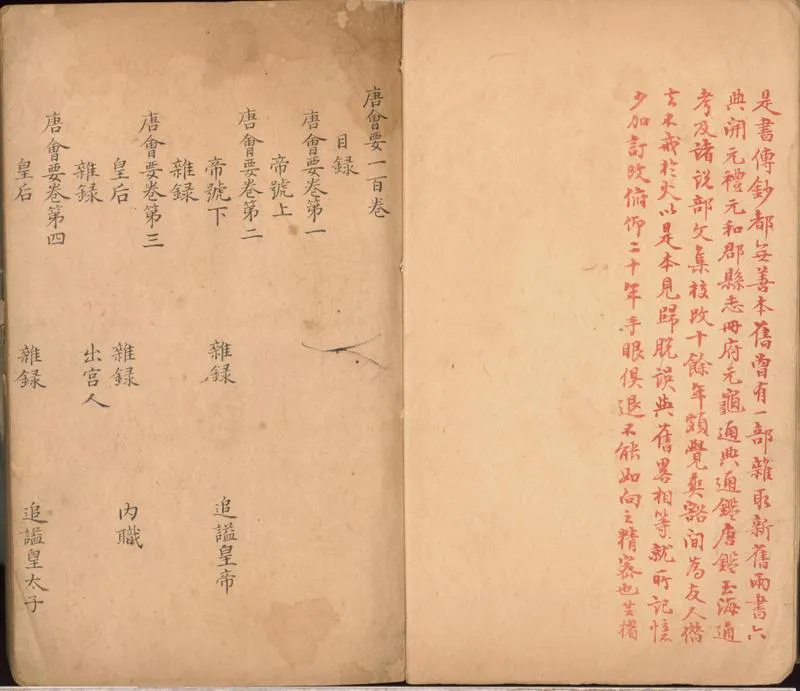 是書傳鈔都無善本舊曾有一部雜取新舊兩書六
典開元禮元和郡縣志冊府元龜通典通鑑唐鑑玉海通
考及諸說部文集校改十餘年頗覺爽豁間為友人攜
去不戒於火以是本見歸脫誤與舊畧相等就所記憶
少加訂改俯仰二十年手眼俱退不能如向之精密也芸楣
唐會要一百卷
目録
唐會要卷第一
帝號上
唐會要卷第二
帝號下 雜録 追諡皇帝
雜録
唐會要卷第三
皇后 雜録 內職
雜録 出宮人
唐會要卷第四
皇后 雜録 追諡皇太子